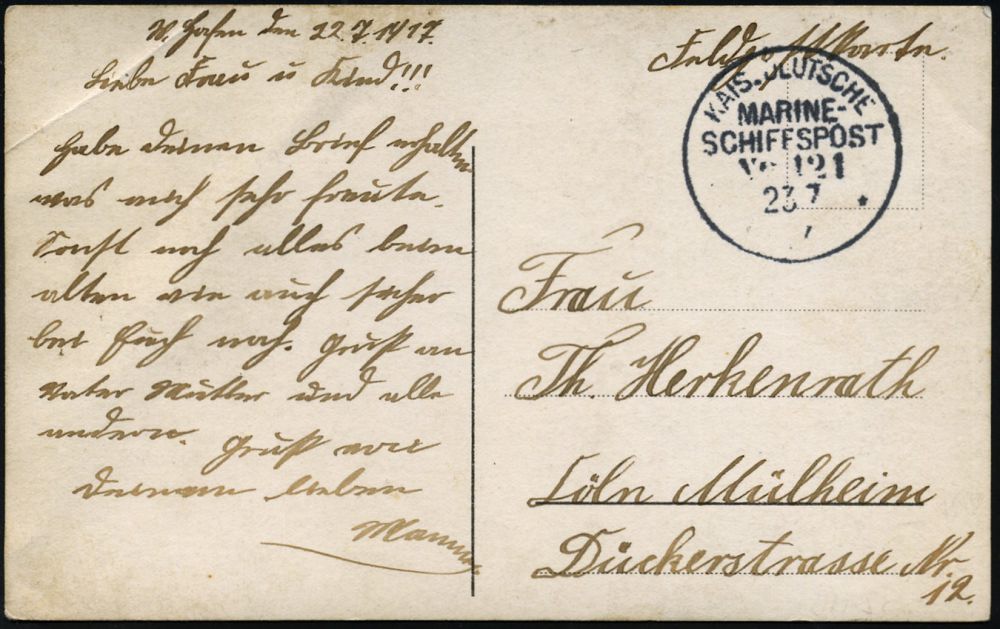 W. Hafen den 22.7.1917.
Liebe Frau u Kind!!!
Habe deinen Brief erhalten
was mich sehr freute.
Sonst noch alles beim
alten wie auch sicher
bei Euch noch. Gruß an
Vater Mutter und alle
andern. Gruß von
deinem lieben
Mann.
Feldpostkarte.
KAIS. DEUTSCHE
MARINE-
SCHIFFSPOST
No 121
23 7
Frau
Th. Herkenrath
Cöln Mülheim
Dückerstrasse Nr.
12.